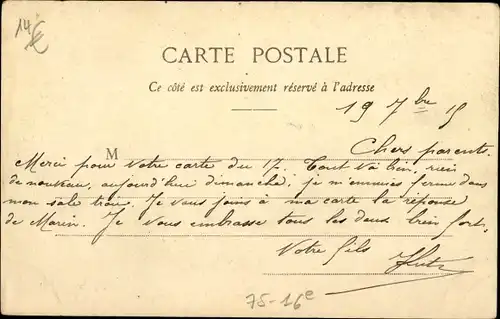 14€
CARTE POSTALE
Ce côté est exclusivement réservé à l'adresse
19 7bre 15
M
Chers parents.
Merci pour votre carte du 17. Tout va bien, rien
de nouveau, aujourd'hui dimanche, je m'ennuies ferme dans
mon sale trou. Je vous joins à ma carte la réponse
de Marin. Je vous embrasse tous les deux bien fort.
Votre fils
75-16e